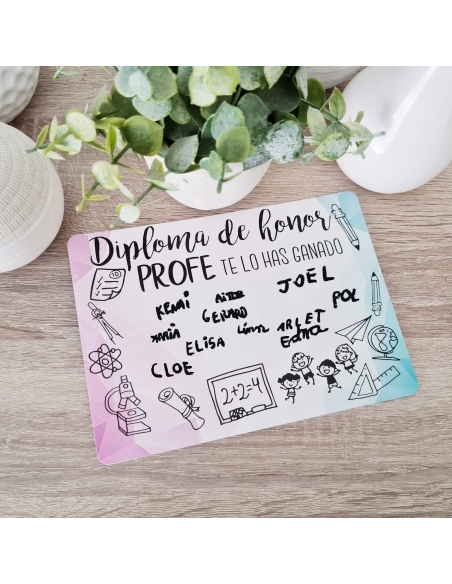 Diploma de honor
PROFE TE LO HAS GANADO
KEMI AITOR JOEL
GERARD POL
MARIA ARLET
ELISA Edna
CLOE
2+2=4